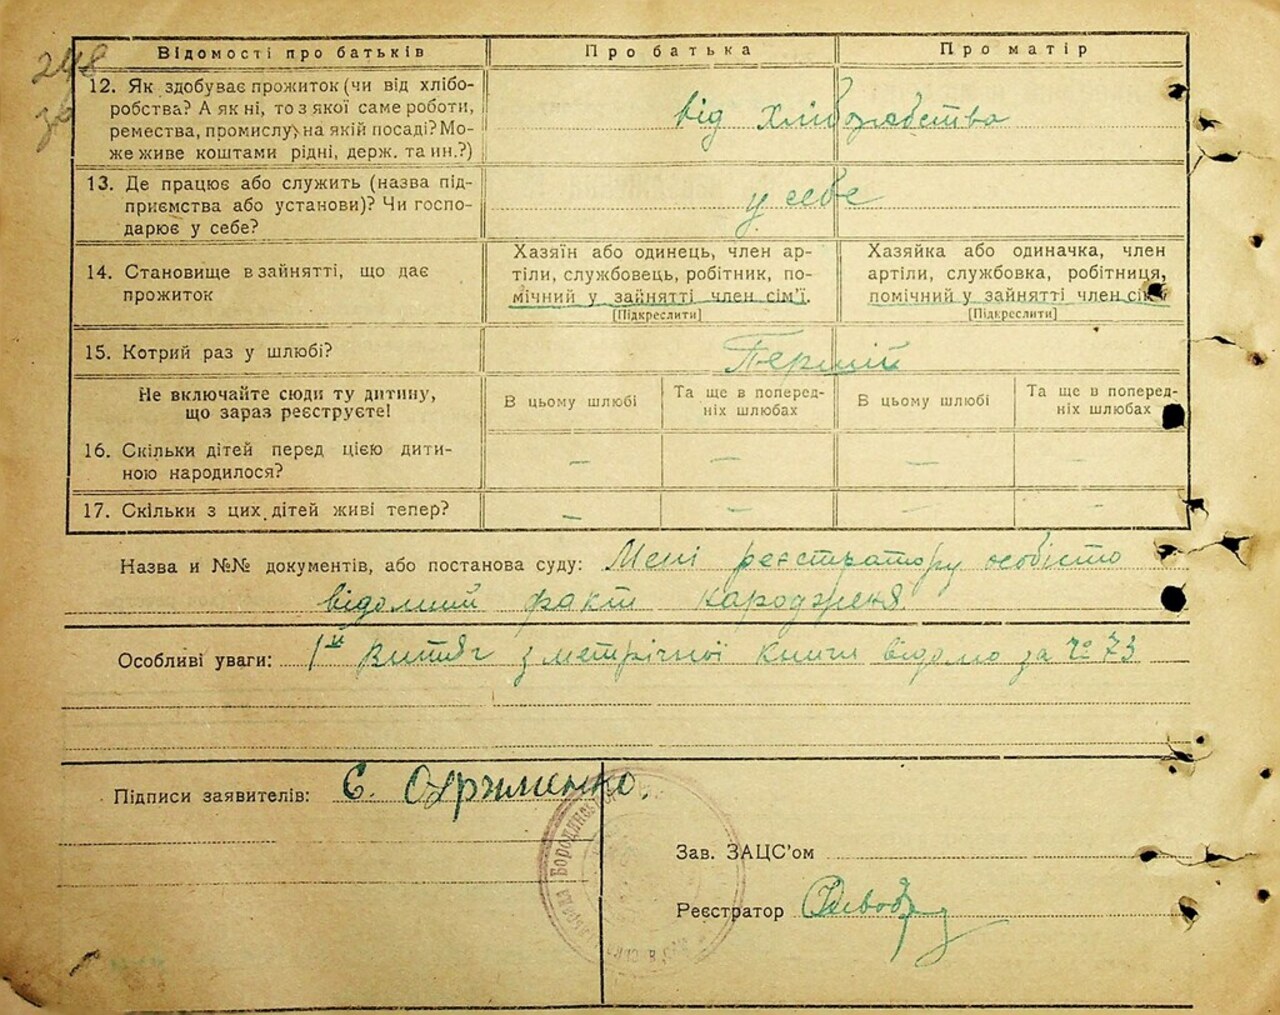 248
Відомості про батьків
Про батька
Про матір
12. Як здобуває прожиток (чи від хлібо-
робства? А як ні, то з якої саме роботи,
ремества, промислу, на якій посаді? Мо-
же живе коштами рідні, держ. та ин.?)
від хліборобства
13. Де працює або служить (назва під-
приємства або установи)? Чи госпо-
дарює у себе?
у себе
14. Становище в зайнятті, що дає
прожиток
Хазяїн або одинець, член ар-
тіли, службовець, робітник, по-
мічний у зайнятті член сім'ї.
[Підкреслити]
Хазяйка або одиначка, член
артіли, службовка, робітниця,
помічний у зайнятті член сім'ї
[Підкреслити]
15. Котрий раз у шлюбі?
Перший
Не включайте сюди ту дитину,
що зараз реєструєте!
В цьому шлюбі
Та ще в поперед-
ніх шлюбах
В цьому шлюбі
Та ще в поперед-
ніх шлюбах
16. Скільки дітей перед цією дити-
ною народилося?
– – – –
17. Скільки з цих дітей живі тепер?
– – – –
Назва и №№ документів, або постанова суду: Мені реєстратору особісто
відомий факт народженя.
Особливі уваги: 1й витяг з метрічної книги відомо за № 73
Підписи заявителів: Є. Оржименко.
Бородянсь
Зав. ЗАЦС'ом
Реєстратор